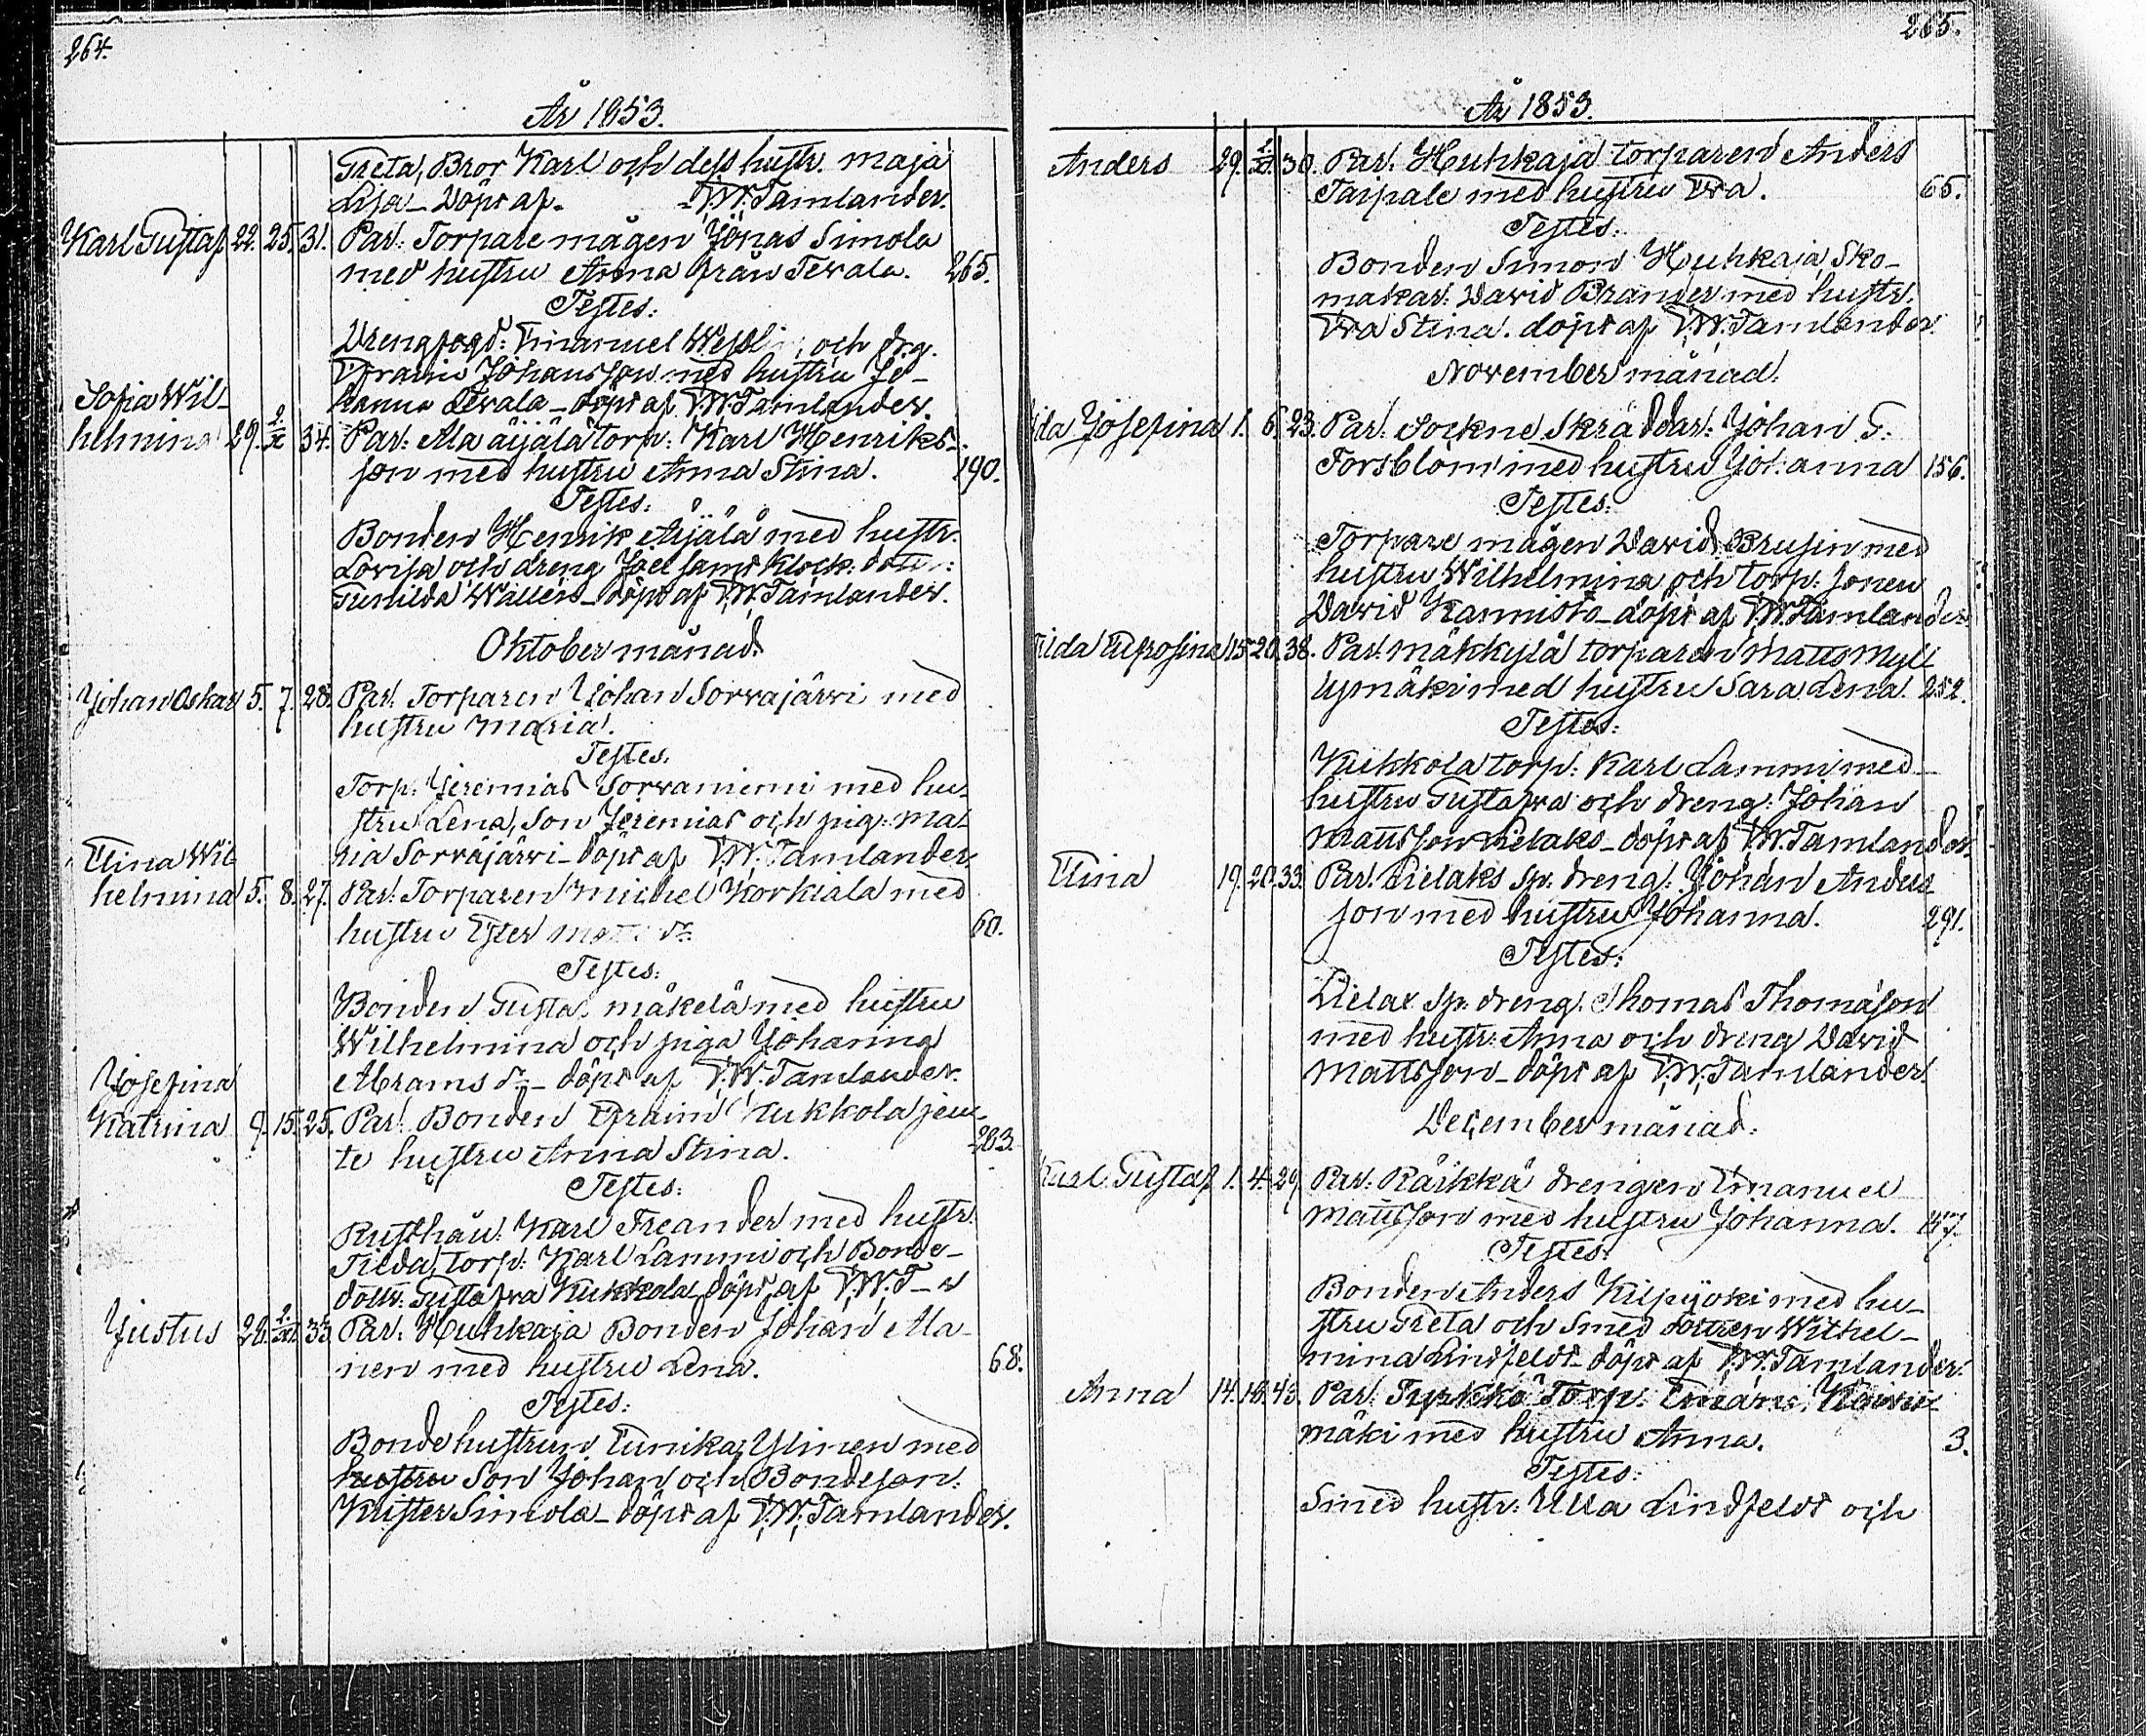 264.
År 1853.
Greta, Bror Karl och dess hustr. Maja
Lisa_ Döpt af_ T.W. Tamlander.
Karl Gustaf 22. 25. 31. Par: Torpare mågen Jonas Simola
med hustru Anna från Tevala. 265.
Testes:
Drengfogd: Emanuel och drg.
Efraim Johansson med hustru Jo-
hanna Tevala_ döpt af T.W. Tamlander.
Sofia Wil-
helmina 29. 2/x 34. Par: Ala äijälä torp: Karl Henriks-
son med hustru Anna Stina. 190.
Testes:
Bonden Henrik Äijälä med hustr.
Lovisa och dreng Joel samt Klock. dott:
Gunilda Wallen_ döpt af T.W. Tamlander.
Oktober månad.
Johan Oskar 5. 7. 28. Par: Torparen Johan Sorvajärvi med
hustru Maria.
Testes.
Torp: Jeremias Sorvaniemi med hu-
stru Lena, Son Jeremias och pig: Ma-
ria Sorvajärvi_ döpt af T.W. Tamlander.
Elina Wil
helmina 5. 8. 27. Par: Torparen Michel Korkiala med
hustru Ester 60.
Testes:
Bonden Gusta. Mäkelä med hustru
Wilhelmina och piga Johanna
Abrams dr_ döpt af T.W. Tamlander.
Josefina
Katrina 9. 15. 25. Par: Bonden Efraim Kukkola jem-
te hustru Anna Stina. 283.
Testes:
Rusthåll: Karl Freander med hustr.
Tilda, torp: Karl Lammi och Bonde-
dottr: Gustafva Kukkola, döpt af T.W.T_r
Justus 28. 2/XI. 33. Par: Huhkaja Bonden Johan Ala-
nen med hustru Lena. 68.
Testes:
Bondehustrun Eunika Ylinen med
hustru Son Johan och Bondeson:
Krister Simola_ döpt af T.W. Tamlander.
265.
År 1853.
Anders 29. 2/XI. 30. Par: Huhkaja torparen Anders
Taipale med hustru Eva. 66.
Testes:
Bonden Simon Huhkaja, Sko-
makar: David Brander med hustr.
Eva Stina. döpt af T.W. Tamlander.
November månad.
ida Josefina 1. 6. 23. Par: Sockne Skräddar: Johan G:
Forsblom med hustru Johanna 156.
Testes:
Torpare mågen David Brusin med
hustru Wilhelmina och torp: sonen
David Kannisto_ döpt af T.W. Tamlander.
ilda Eufrosina 15. 20. 38. Par: Mäkkylä torparen Matts Myll
ymäki med hustru Sara Lena. 252.
Testes:
Kukkola torp: Karl Lammi med
hustru Gustafva och dreng: Johan
Mattsson Lielaks_ döpt af T.W. Tamlander.
Elina 19. 20. 33. Par: Lielaks Sp: dreng: Johan Anders
son med hustru Johanna. 291.
Testes:
Lielax Sp: dreng: Thomas Thomasson
med hustr: Anna och dreng David
Mattsson_ döpt af T.W. Tamlander.
December månad.
Karl Gustaf 1. 4. 29. Par: Räikkä drengen Emanuel
Mattsson med hustru Johanna. 157.
Testes:
Bonden Anders Kilpijoki med hu-
stru Greta och Smed dottren Wilhel-
mina Lindfeldt_ döpt af T.W. Tamlander.
Anna 14. 18. 43. Par: Tyrkkö Torp:
mäki med hustru Anna. 3.
Testes:
Smed hustr: Ulla Lindfeldt och